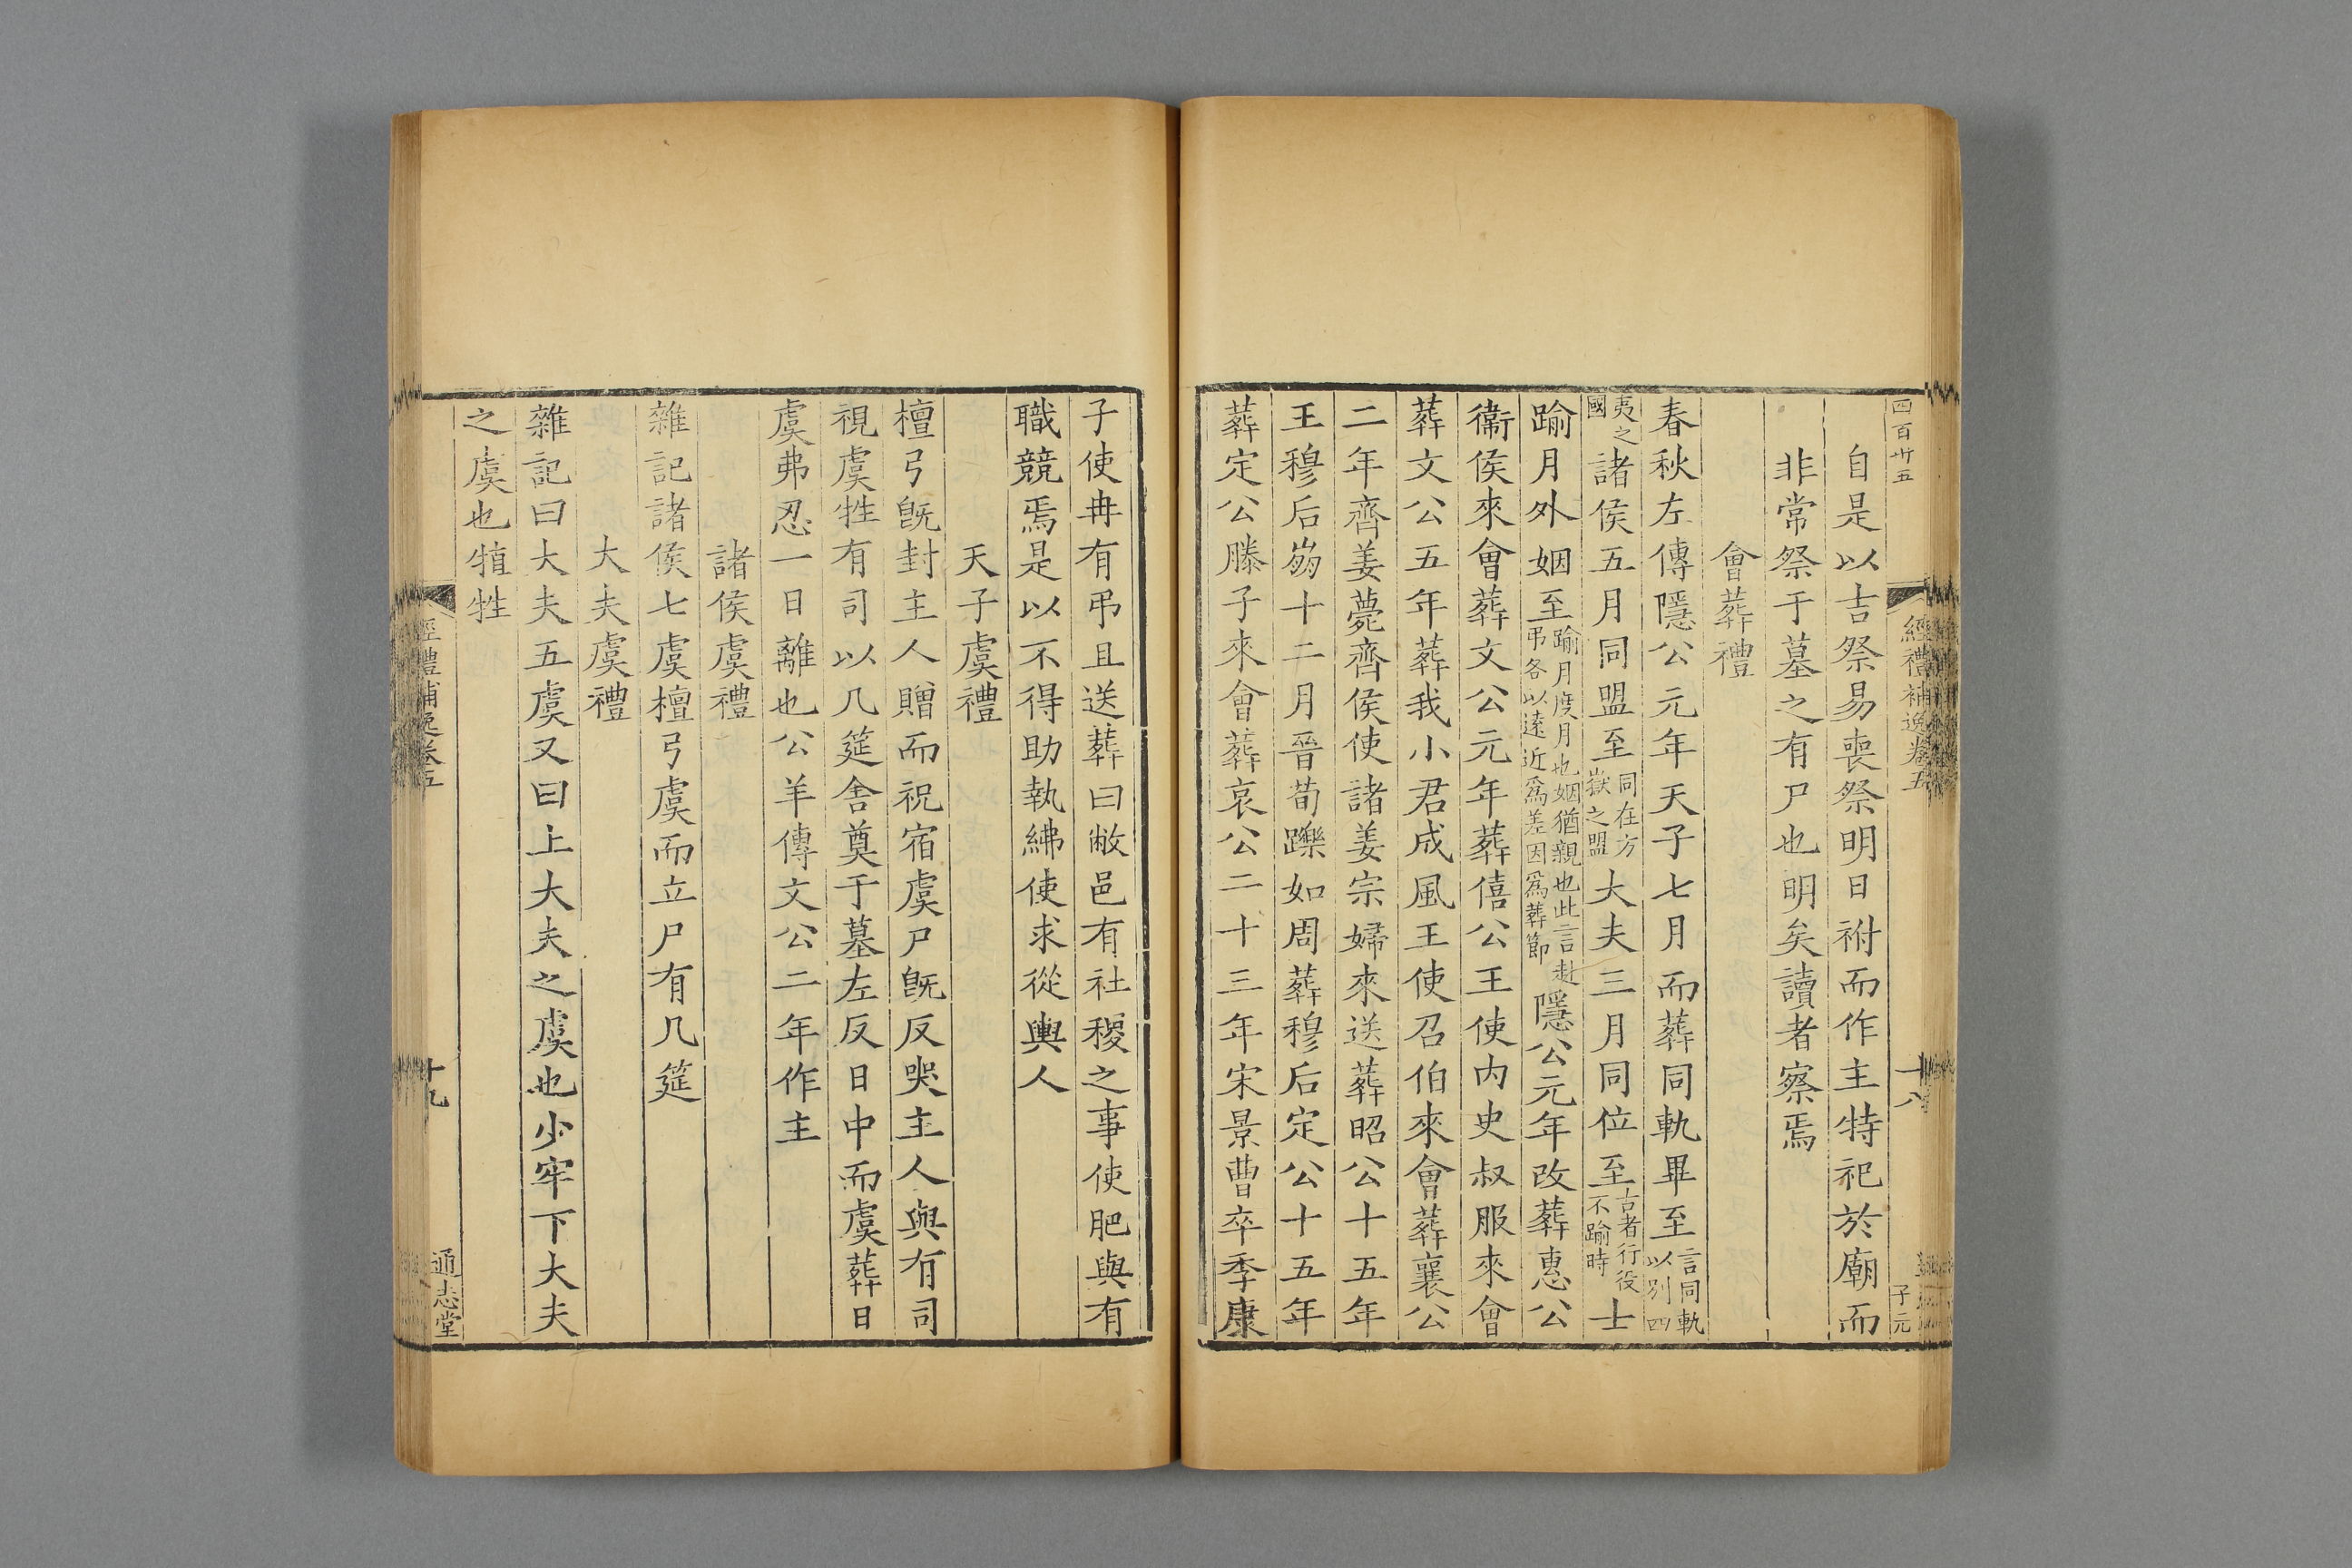 四百卅五
經禮補逸卷五
十八
子元
自是以吉祭易喪祭明日祔而作主特祀於廟而
非常祭于墓之有尸也明矣讀者察焉
會葬禮
春秋左傳隱公元年天子七月而葬同軌畢至言同軌以別四
夷之國諸侯五月同盟至同在方嶽之盟大夫三月同位至古者行役不踰時士
踰月外姻至踰月度月也姻猶親也此言赴弔各以遠近爲差因爲葬節隱公元年改葬惠公
衞侯來會葬文公元年葬僖公王使内史叔服來會
葬文公五年葬我小君成風王使召伯來會葬襄公
二年齊姜薨齊侯使諸姜宗婦來送葬昭公十五年
王穆后崩十二月晉荀躒如周葬穆后定公十五年
葬定公滕子來會葬哀公二十三年宋景曹卒季康
子使冉有弔且送葬曰敝邑有社稷之事使肥與有
職競焉是以不得助執紼使求從輿人
天子虞禮
檀弓旣封主人贈而祝宿虞尸旣反哭主人與有司
視虞牲有司以几筵舍奠于墓左反日中而虞葬日
虞弗忍一日離也公羊傳文公二年作主
諸侯虞禮
雜記諸侯七虞檀弓虞而立尸有几筵
大夫虞禮
雜記曰大夫五虞又曰上大夫之虞也少牢下大夫
之虞也犆牲
經禮補逸卷五
十九
通志堂